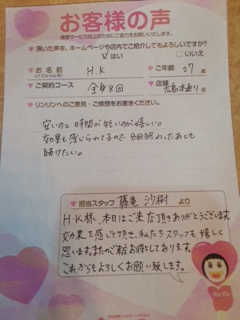 お客様の声
頂いた声を、ホームページや店内でご紹介してもよろしいですか？
はい □いいえ
お名前 H.K ご年齢 27歳
(イニシャル可)
ご契約コース 全身8回 店舗 広島本通り店
リンリンへのご意見・ご感想をお書きください。
安いのと時間が短いのが嬉しい。
効果も感じられてるので 8回終わったあとも
続けたい。
担当スタッフ 藤亀 沙樹 より
H・K様、本日はご来店頂きありがとうございます。
効果を感じて頂き、私たちスタッフも嬉しく
思います。またのご来店お待ちしております。
これからもよろしくお願い致します。